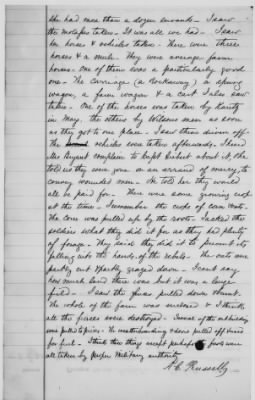 She had more than a dozen servants – I saw
the molasses taken – It was all we had – I saw
her horses & vehicles taken – There were three
horses & a mule. They were average farm
horses – One of them was a particularly good
one – The carriage (a Rockaway) a spring
wagon, a farm wagon & a cart I also saw
taken – One of the horses was taken by
in May, the others by Wilsons men as soon
as they got to our place – I saw them driven off –
The vehicles were taken afterwards. I heard
Mrs Bryant complain to Capt about it, she
told us they were gone on an errand of mercy, to
convey wounded men – He told her they would
all be paid for – There were some growing crops
at the time – I remember the crops of corn & oats –
The corn was pulled up by the roots – I asked the
soldiers what they did it for as they had plenty
of forage – They said they did it to prevent its
falling into the hands of the rebels – The oats were
partly cut & partly grazed down – I cant say
how much land there was but it was a large
field – I saw the fences pulled down & burnt –
The whole of the farm was enclosed & I think
all the fences were destroyed – Several of the outbuildings
were pulled to pieces – The weatherboarding & doors pulled off & used
for fuel – I think these things except perhaps the fowls were
all taken by proper Military authority